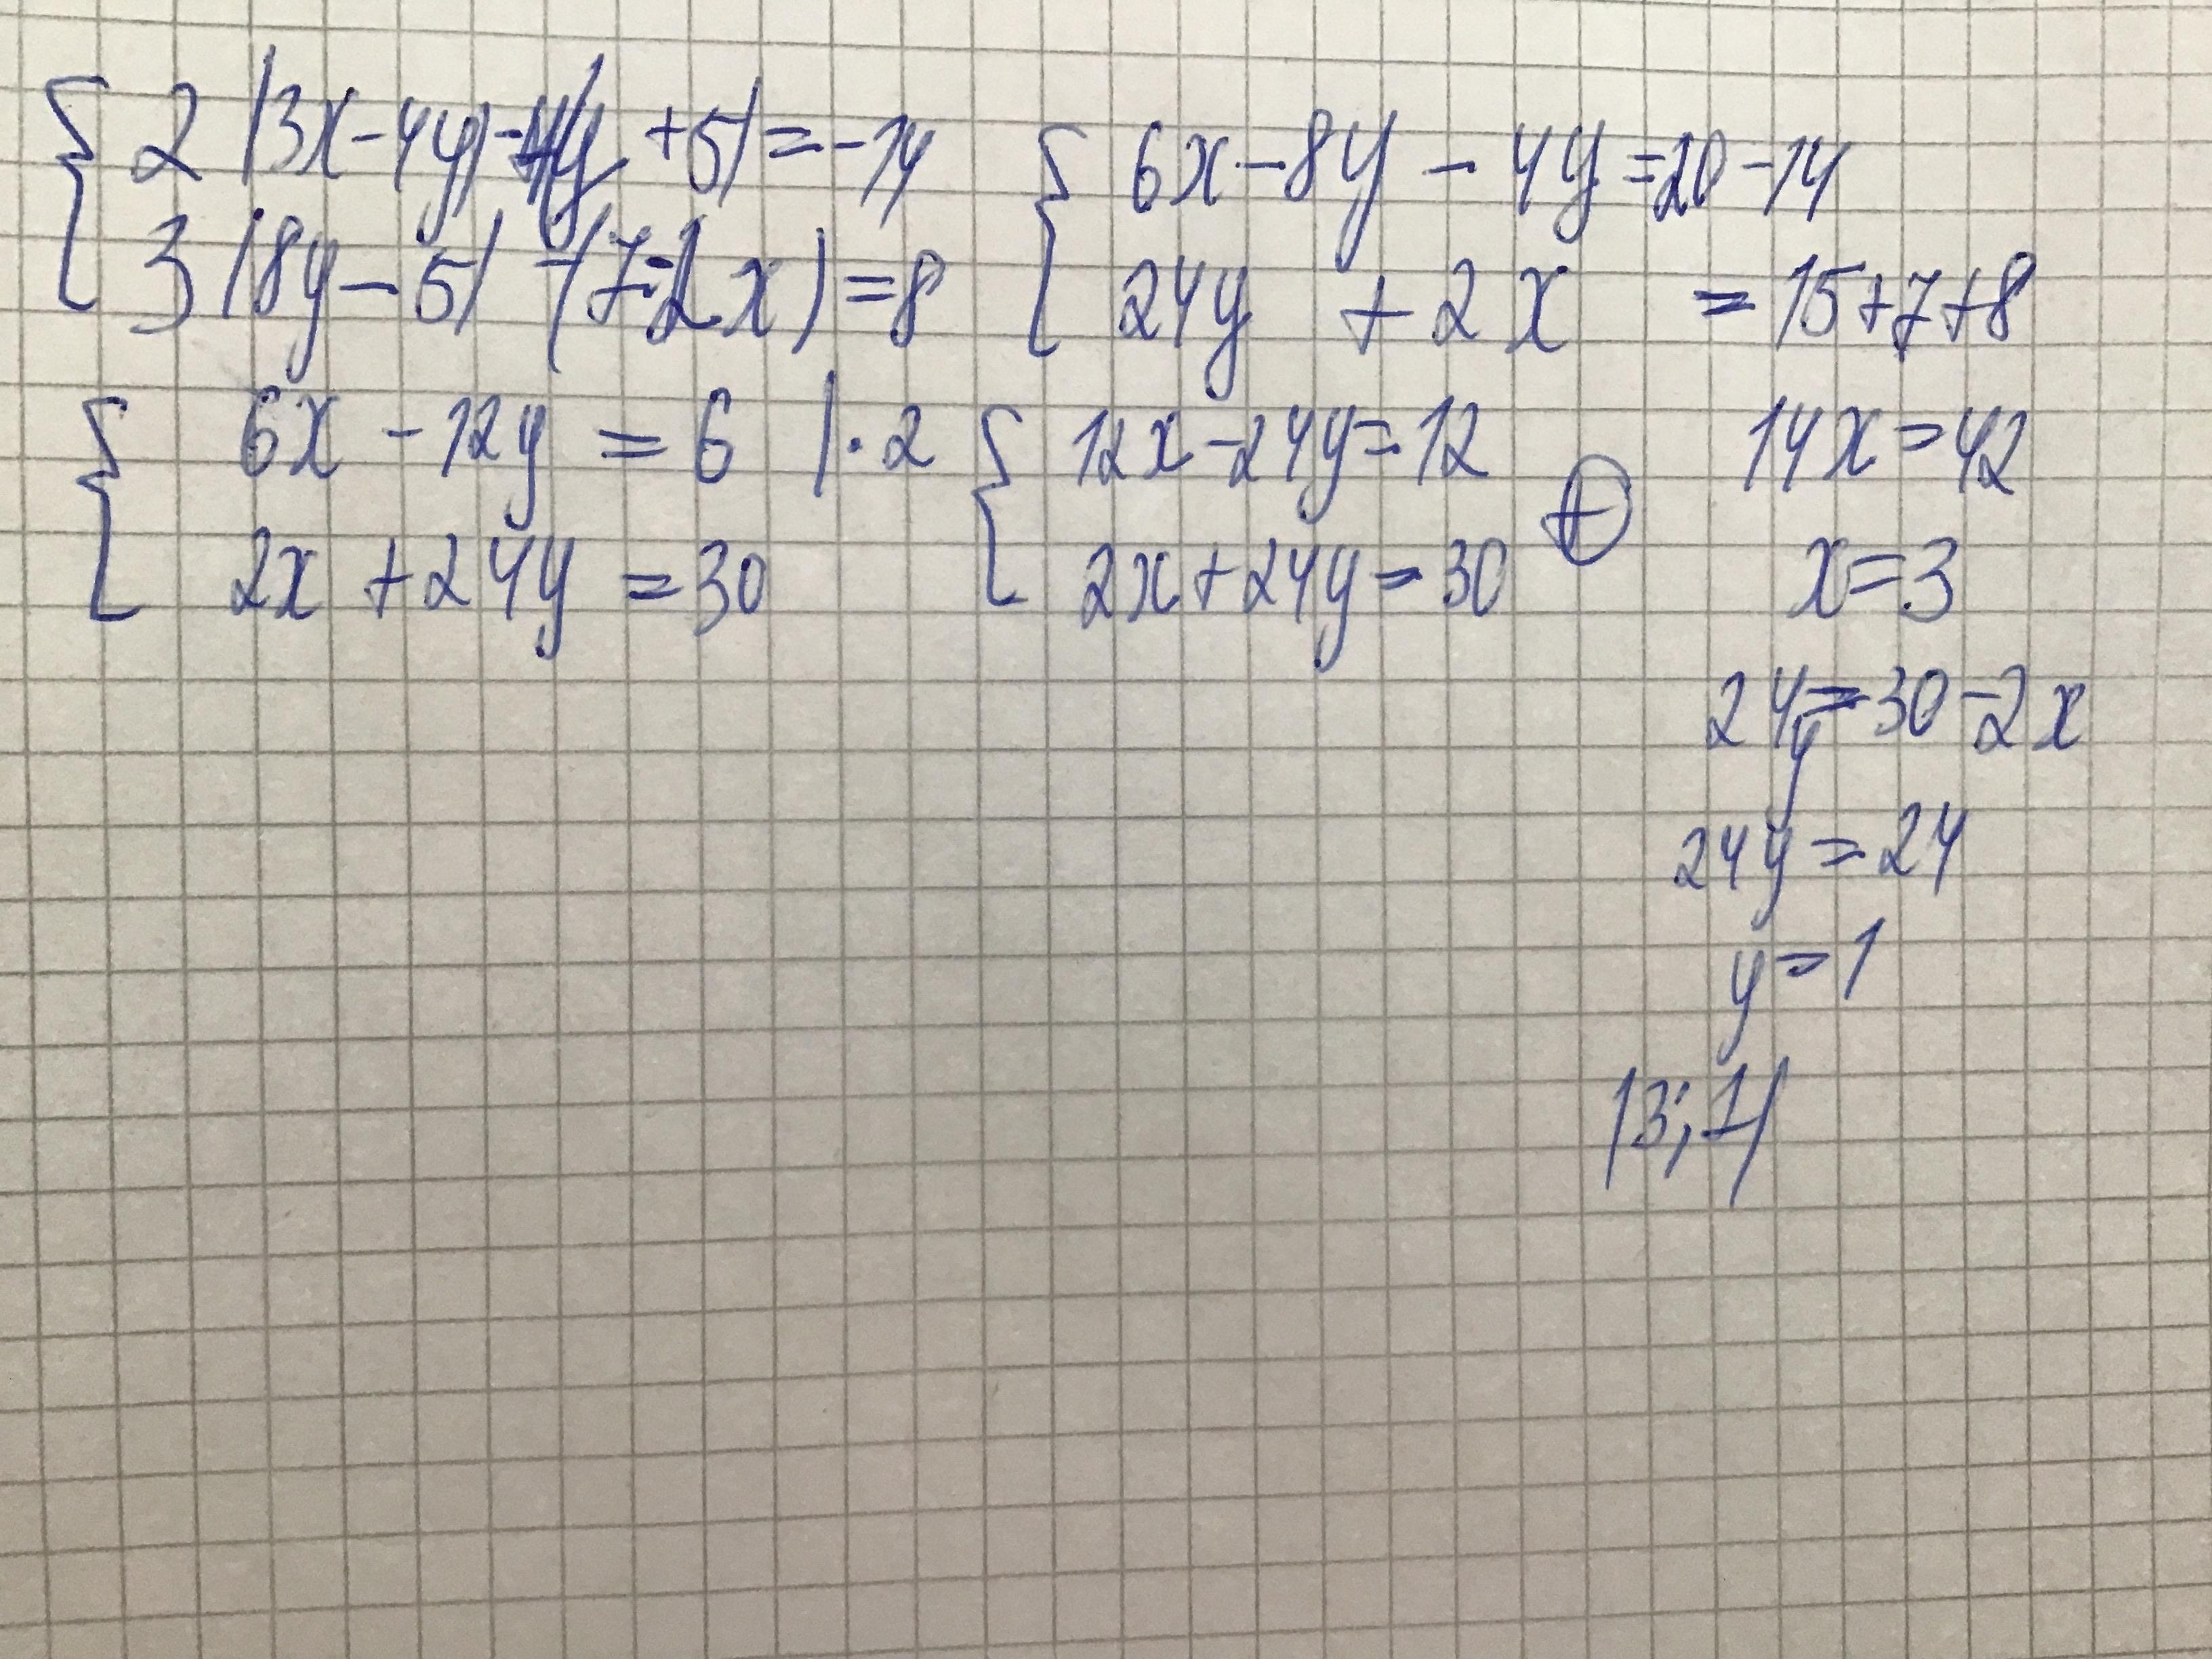 { 2(3x-4y)-4(y+5)=-14
3(8y-5)-(7-2x)=8
{ 6x-8y-4y=20-14
24y+2x=15+7+8
{ 6x-12y=6 |·2
2x+24y=30
{ 12x-24y=12
2x+24y=30
⊕
14x=42
x=3
24y=30-2x
24y=24
y=1
(3;1)